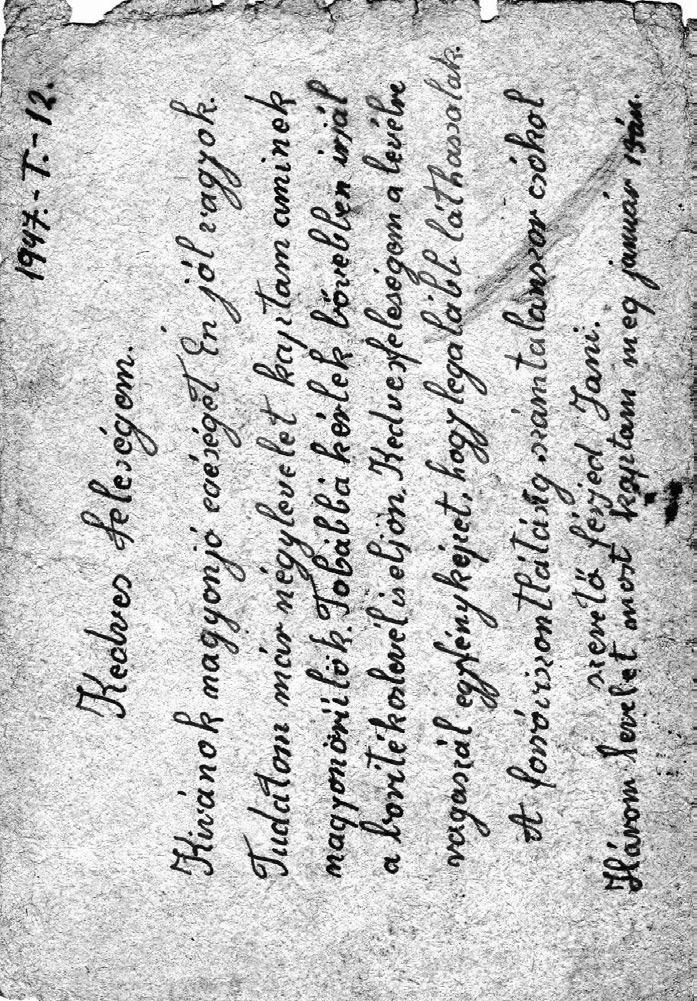 1947.-I.-12.
Kedves feleségem.
Kivánok nagyonjó egéséget Én jól vagyok.
Tudatom már négylevelet kaptam aminek
nagyonörülök. Tobábbá kérlek bővebben irjál
a boritékoslevél is eljön. Kedvesfeleségom a levélre
ragasszál egyfényképet, hogylegalább láthassalak.
A forróviszontlátásig számtalanszor csókol
szerető férjed Jani.
Három levelet most kaptam meg január 13án.